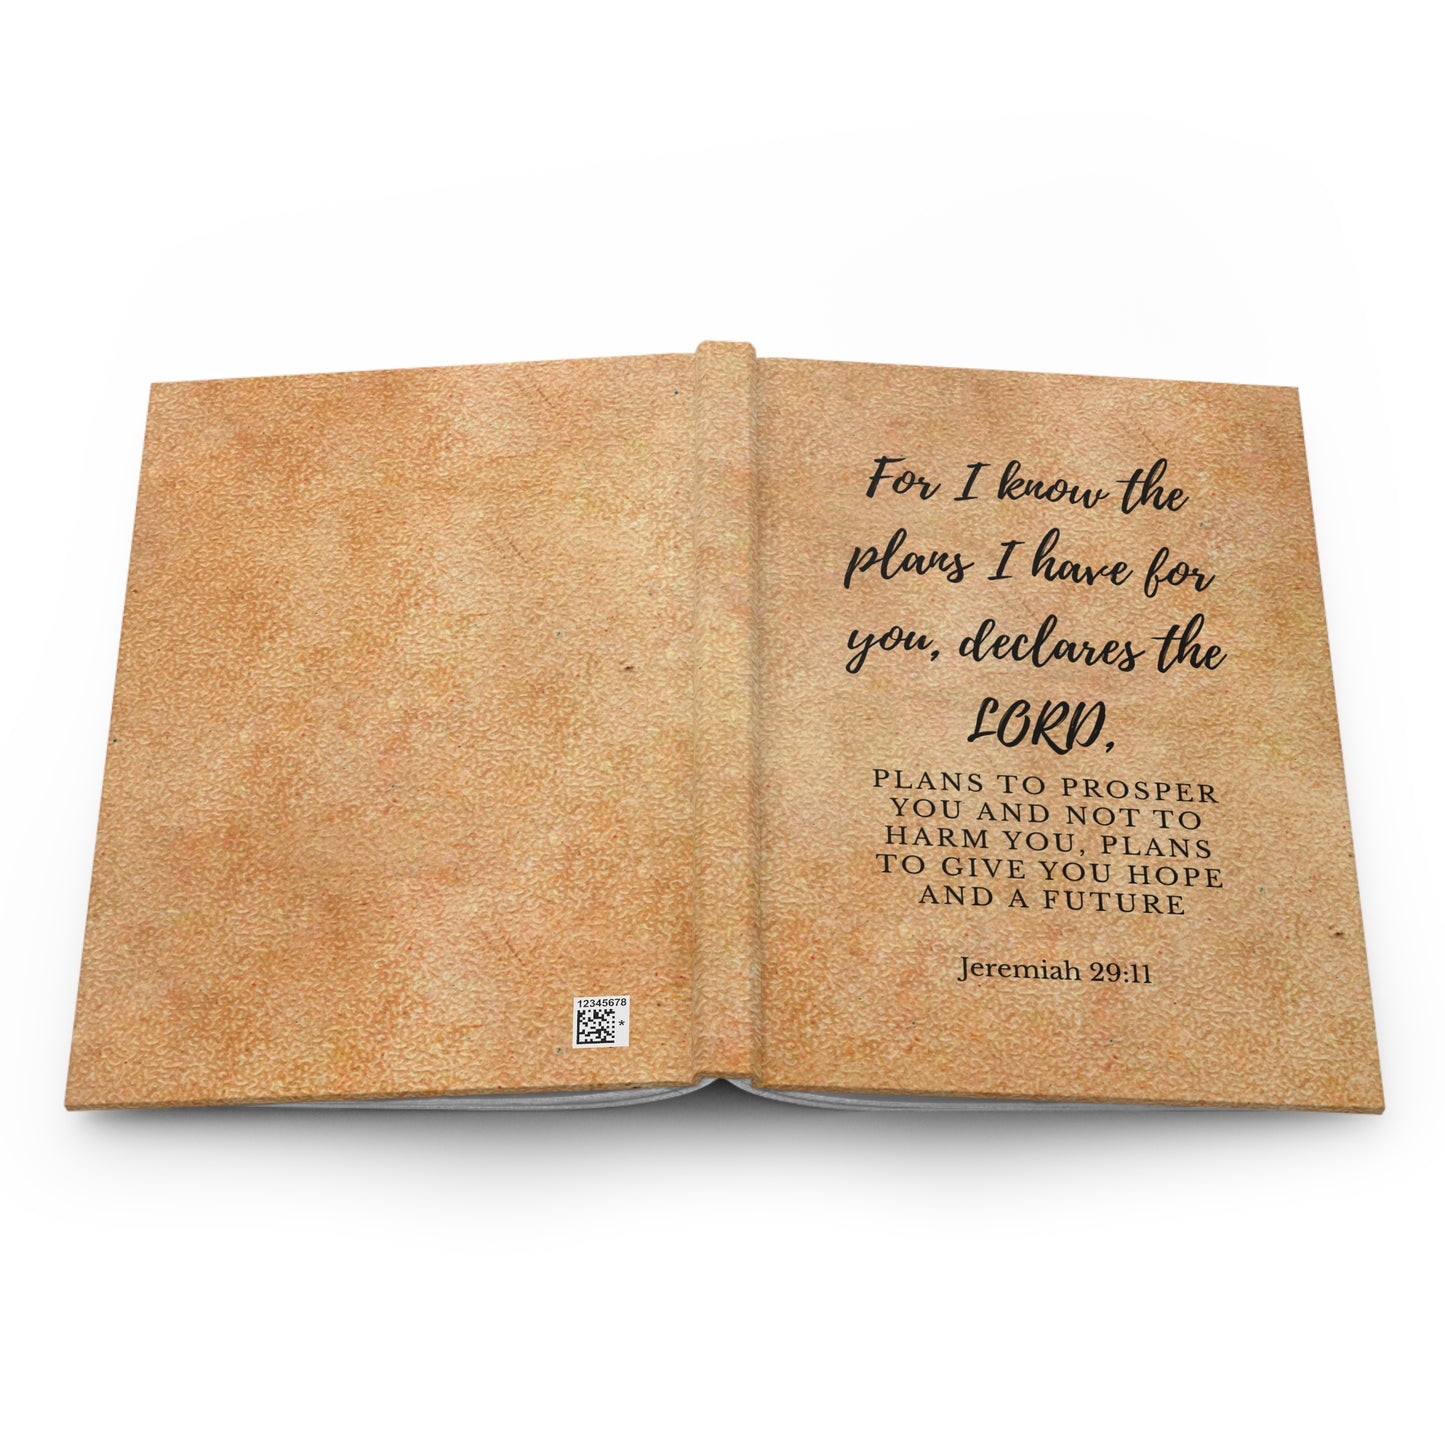 For I know the
plans I have for
you, declares the
LORD,
PLANS TO PROSPER
YOU AND NOT TO
HARM YOU, PLANS
TO GIVE YOU HOPE
AND A FUTURE
Jeremiah 29:11
12345678
*